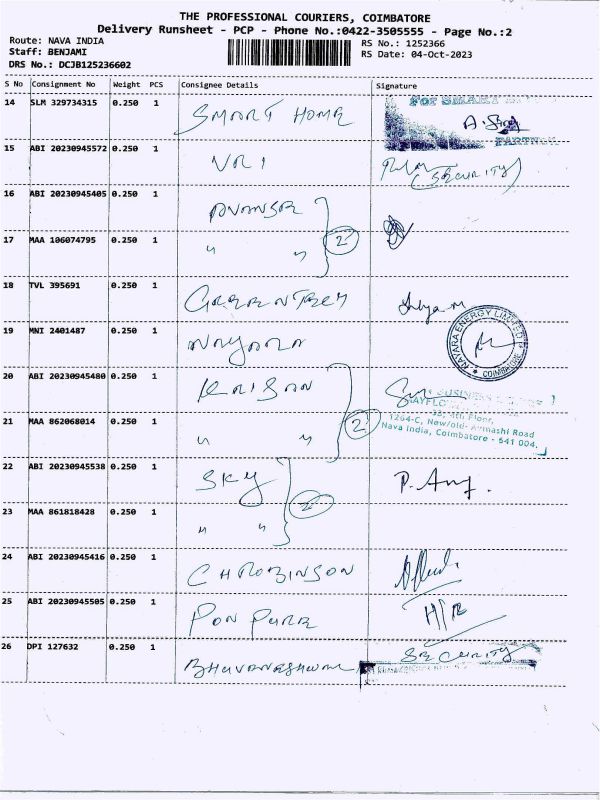 THE PROFESSIONAL COURIERS, COIMBATORE
Delivery Runsheet - PCP - Phone No.:0422-3505555 - Page No.:2
Route: NAVA INDIA
RS No.: 1252366
Staff: BENJAMI
RS Date: 04-Oct-2023
DRS No.: DCJB125236602
S No Consignment No Weight PCS Consignee Details Signature
14 SLM 329734315 0.250 1 SMART HOME
15 ABI 20230945572 0.250 1 VRI (SECURITY)
16 ABI 20230945405 0.250 1
17 MAA 106074795 0.250 1 " " 2
18 TVL 395691 0.250 1 GREENTREY
19 MNI 2401487 0.250 1 NAYARA
NAYARA ENERGY LIMITED
COIMBATORE
20 ABI 20230945480 0.250 1 KRISAN
21 MAA 862068014 0.250 1 " " 2
38, 4th Floor,
1264-C, New/old- Avinashi Road
Nava India, Coimbatore - 641 004.
22 ABI 20230945538 0.250 1 SKY
23 MAA 861818428 0.250 1 " " 2
24 ABI 20230945416 0.250 1 CH ROBINSON
25 ABI 20230945505 0.250 1 PON PURE
26 DPI 127632 0.250 1 BHUVANESHWARI SECURITY